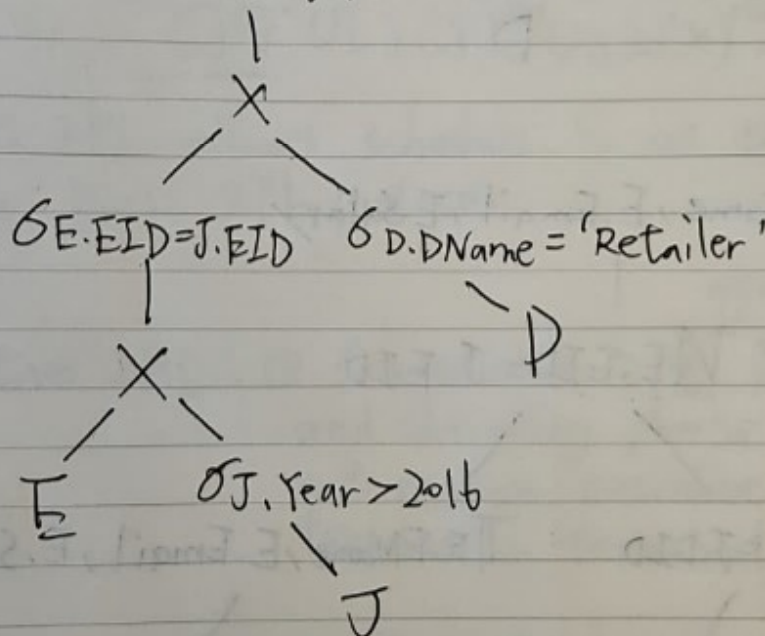 X
σE.EID=J.EID σD.DName='Retailer'
X
D
E
σJ.Year>2016
J